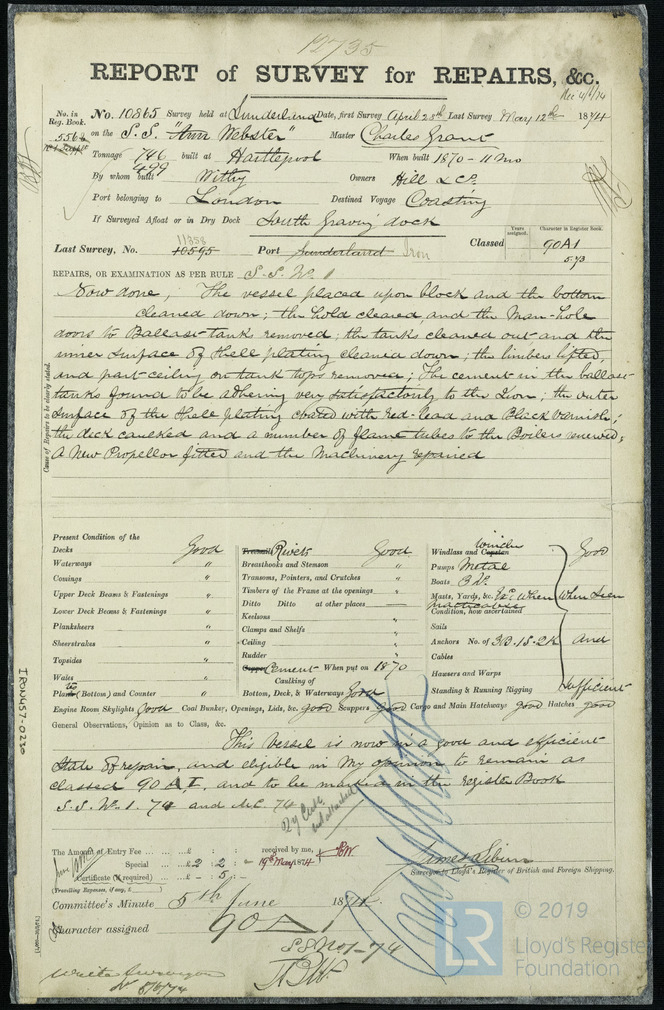 12735
REPORT of SURVEY for REPAIRS, &c.
Rec 4/6/74
No. in Reg. Book. No. 10865 Survey held at Sunderland Date, first Survey April 25th Last Survey May 12th 1874
556 on the S.S. "Ann Webster" Master Charles Grant
Tonnage 746 built at Hartlepool When built 1870 - 11 mo
499
By whom built Withy Owners Hill & Co.
Port belonging to London Destined Voyage Coasting
If Surveyed Afloat or in Dry Dock South Graving dock
Years assigned. Character in Register Book.
11358
Last Survey, No. 10595 Port Sunderland Iron Classed 90A1
5.73
REPAIRS, OR EXAMINATION AS PER RULE S.S. No. 1
Cause of Repairs to be clearly stated.
Now done, The vessel placed upon block and the bottom
cleaned down; the hold cleared, and the Man-hole
doors to Ballast-tank removed; the tanks cleaned out and the
inner surface of shell plating cleaned down; the limbers lifted,
and part ceiling on tank tops removed; The cement in the ballast
tanks found to be adhering very satisfactorily to the Iron; the outer
surface of the shell plating coated with red-lead and Black varnish;
the deck caulked and a number of flame tubes to the Boilers renewed,
A New Propellor fitted and the Machinery repaired
Present Condition of the
Decks Good
Waterways "
Comings "
Upper Deck Beams & Fastenings "
Lower Deck Beams & Fastenings "
Planksheers "
Sheerstrakes "
Topsides "
Wales "
Plank (Bottom) and Counter "
Treenails Rivets Good
Breasthooks and Stemson "
Transoms, Pointers, and Crutches "
Timbers of the Frame at the openings "
Ditto Ditto at other places
Keelsons "
Clamps and Shelfs "
Ceiling "
Rudder "
Copper Cement When put on 1870
Caulking of
Bottom, Deck, & Waterways Good
Windlass and Capstan Winches Good
Pumps Metal
Boats 3 Do.
Masts, Yards, &c. &c. When When seen
Condition, how ascertained
Sails
Anchors No. of 3B.1S.2K and
Cables
Hausers and Warps
Standing & Running Rigging sufficient
Engine Room Skylights Good Coal Bunker, Openings, Lids, &c. good Scuppers Good Cargo and Main Hatchways good Hatches good
General Observations, Opinion as to Class, &c.
This Vessel is now in a good and efficient
state of repair, and eligible in my opinion to remain as
classed 90 A 1, and to be marked in the register Book
S.S. No. 1. 74 and M.C. 74
The Amount of Entry Fee ... £ : : received by me,
Special ... £ 2 : 2 : - 19th May 1874
Certificate (if required) .. £ - : 5 : -
(Travelling Expenses, if any, £ )
Surveyor to Lloyd's Register of British and Foreign Shipping.
Committee's Minute 5th June 1874
Character assigned 90 A 1
SS No 1-74
Write Surveyor
5/6/74
IRON457-0230
© 2019
LR
Lloyd's Register
Foundation